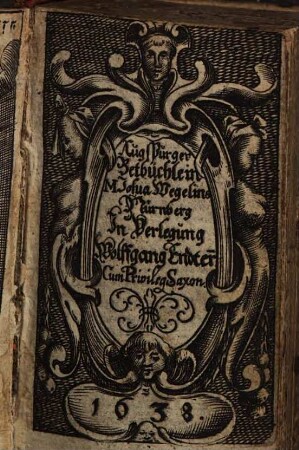 Augspurger
Betbüchlein
M. Josua Wegelins
Nürnberg
In Verlegung
Wolffgang Endter
Cum Privileg Saxon.
1638.